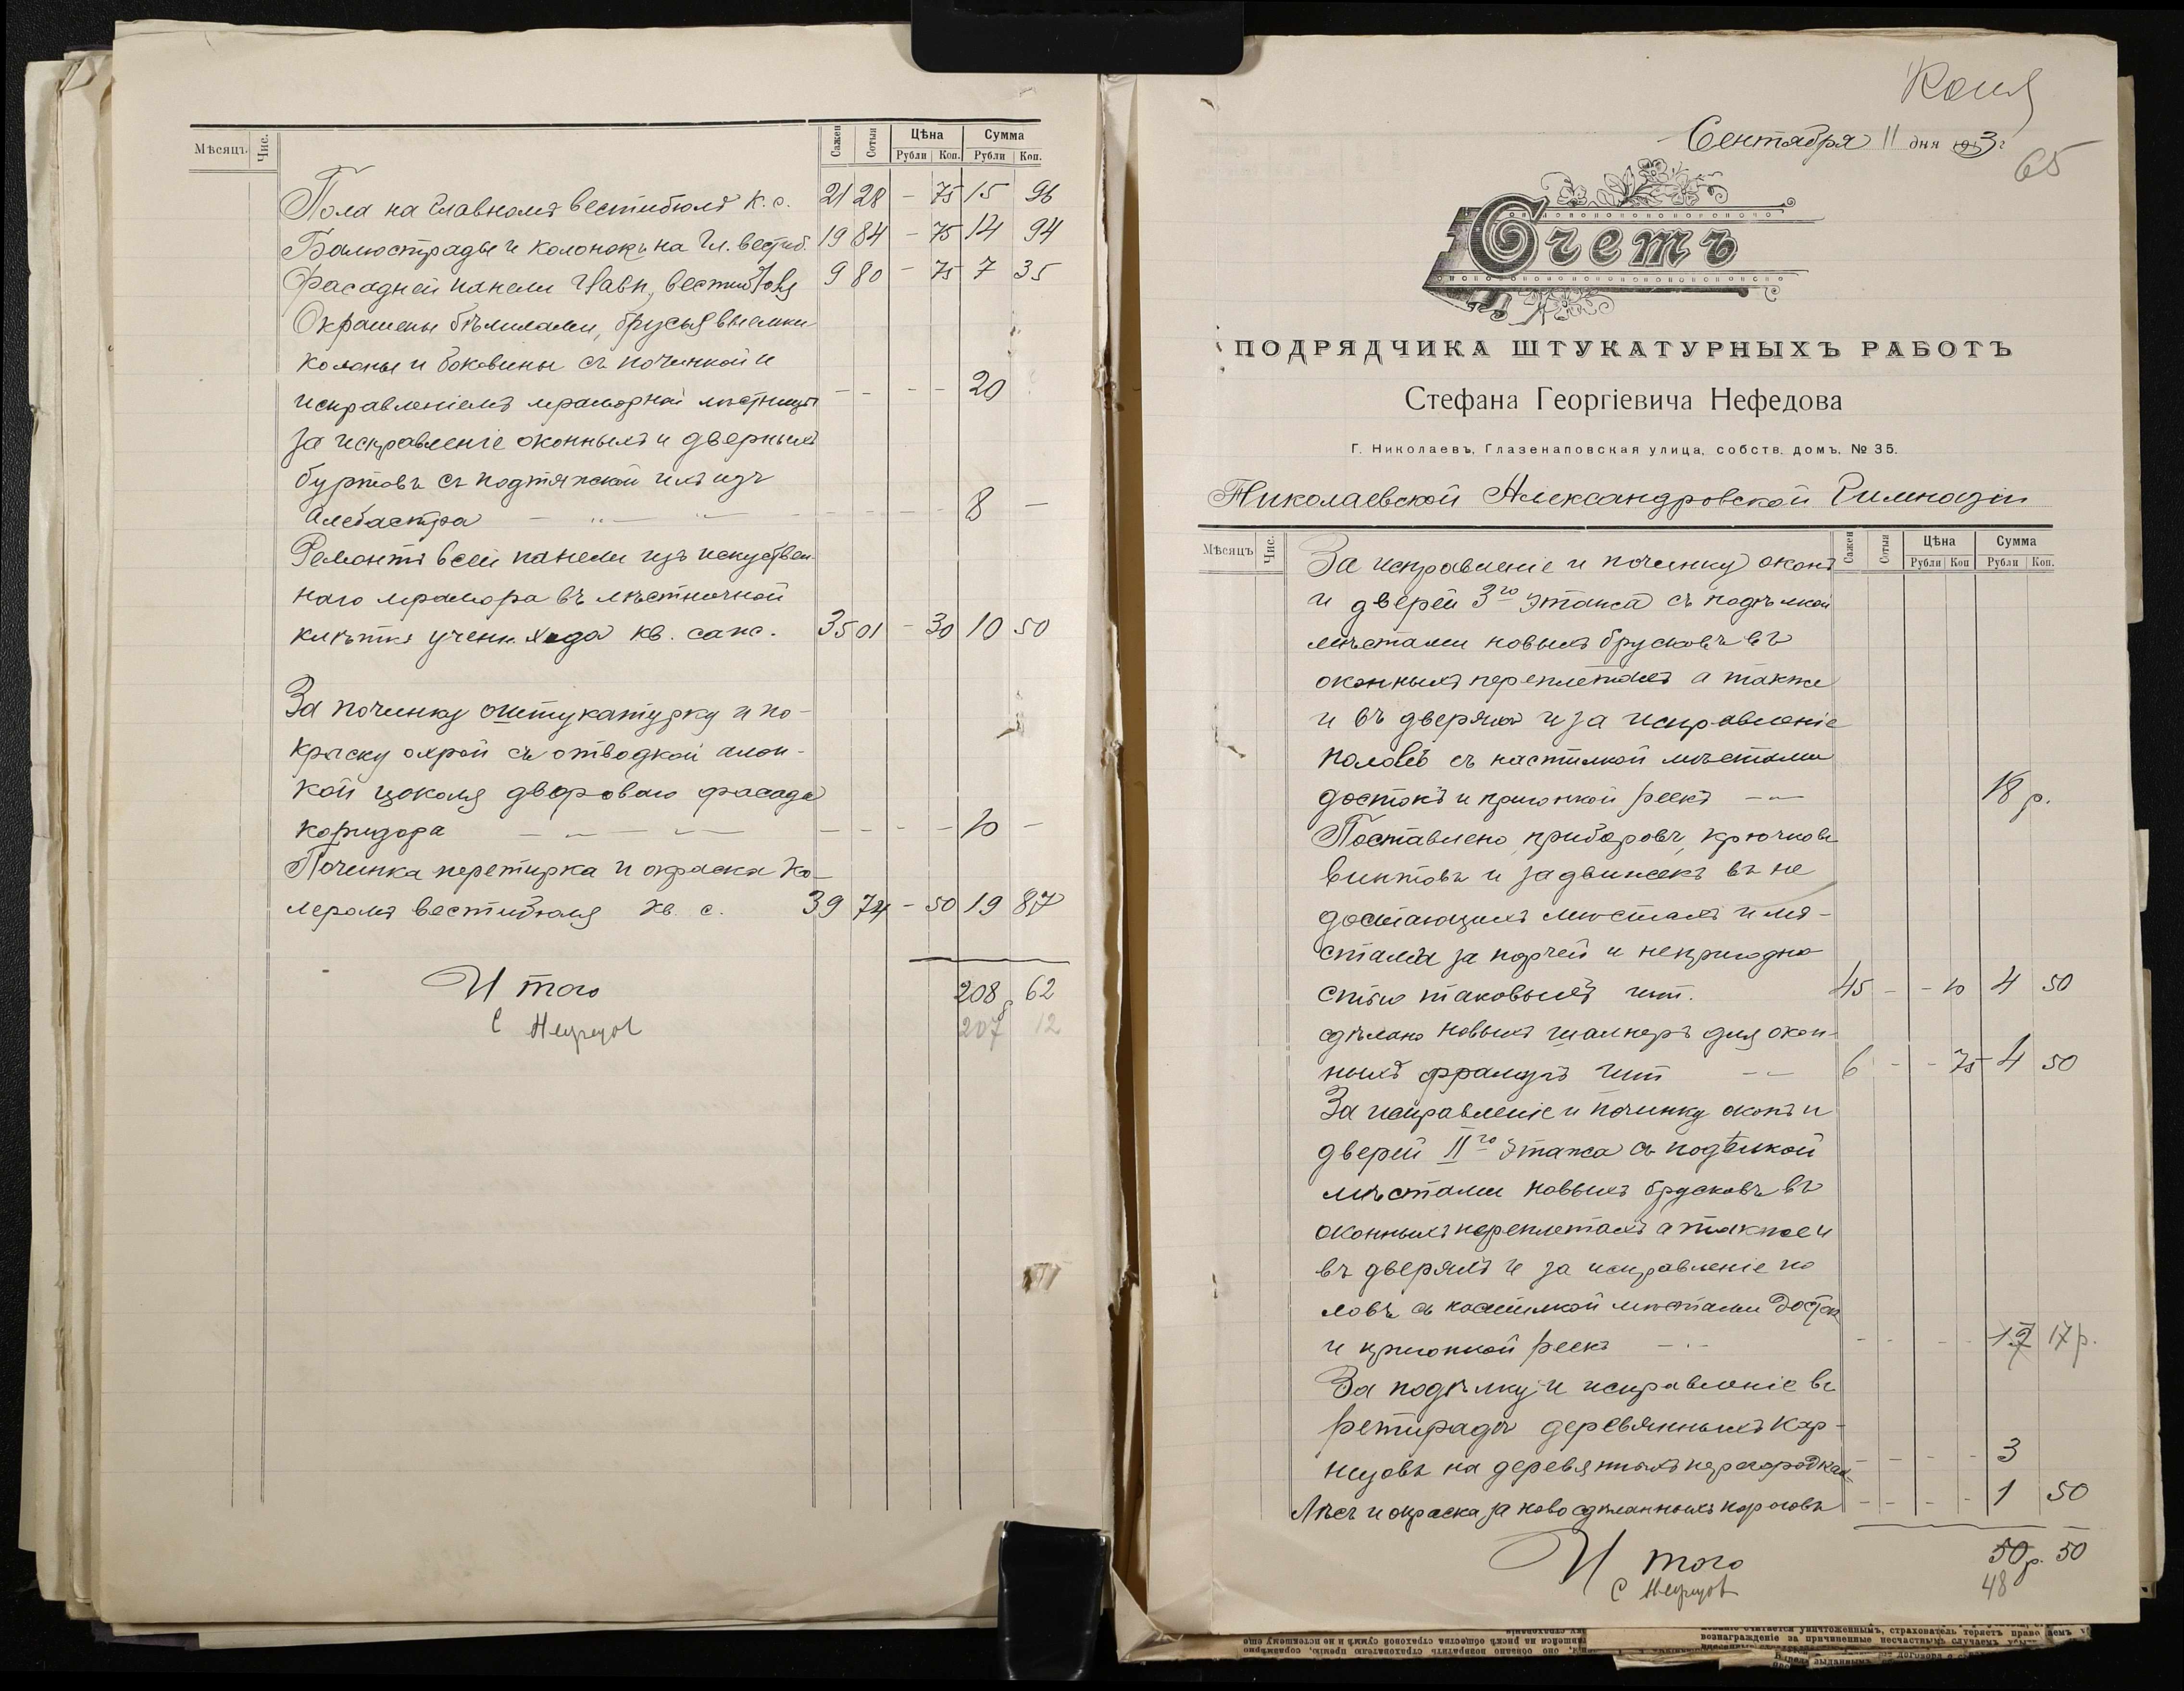 Мѣсяцъ Чис. Сажен Сотыя Цѣна Сумма
Рубли Коп. Рубли Коп.
Пола на главномъ вестибюлѣ к. с. 21 28 - 75 15 96
Балюстрады и колонокъ на гл. вестиб. 19 84 - 75 14 94
Фасадней панели главн. вестибюля 9 80 - 75 7 35
Окрашены бѣлилами, брусья выемки
колоны и боковины съ починкой и
исправленіемъ мраморной лѣстницы - - - - 20
за исправленіе оконныхъ и дверныхъ
буртовъ съ подтяжкой ихъ изъ
Алебастра - - - - 8 -
Ремонтъ всей панели изъ искуствен-
наго мрамора въ лѣстничной
клѣтки ученн. хода кв. саж. 35 01 - 30 10 50
За починку оштукатурку и по-
краску охрой съ отводкой
кой цоколя двороваго фасада
коридора - - - - 10 -
Починка перетирка и окраска ко-
леромъ вестибюля кв. с. 39 74 - 50 19 87
И того 208 р 62
С Нефедов 207 12
Копія
Сентября 11 дня 1913 г
65
Счетъ
ПОДРЯДЧИКА ШТУКАТУРНЫХЪ РАБОТЪ
Стефана Георгіевича Нефедова
Г. Николаевъ, Глазенаповская улица, собств. домъ, № 35.
Николаевской Александровской Гимназіи
Мѣсяцъ Чис. Сажен Сотыя Цѣна Сумма
Рубли Коп Рубли Коп.
За исправленіе и починку оконъ
и дверей 3го этажа съ подѣлкой
мѣстами новыхъ брусковъ въ
оконныхъ переплетахъ а также
и въ дверяхъ и за исправленіе
половъ съ настилкой мѣстами
достокъ и пригонкой реекъ - 18 р.
Поставлено, приборовъ, крючковъ
винтовъ и задвижекъ въ не
достающихъ мѣстахъ и мѣ-
стами за порчей и непригодно
стью таковыхъ шт. 45 - - 10 4 50
сдѣлано новыхъ шалнеръ для окон-
ныхъ фрамугъ шт 6 - - 75 4 50
За исправленіе и починку оконъ и
дверей IIго этажа съ подѣлкой
мѣстами новыхъ брусковъ въ
оконныхъ переплетахъ а также и
въ дверяхъ и за исправленіе по
ловъ съ настилкой мѣстами досток
и пригонкой реекъ - - - - 17 р.
За подѣлку и исправленіе въ
ретирадѣ деревянныхъ кар-
низовъ на деревянныхъ перегородках - - - - 3
Лѣсъ и окраска за ново сдѣланныхъ пороговъ - - - - 1 50
И того 50 р. 50
С Нефедов 48